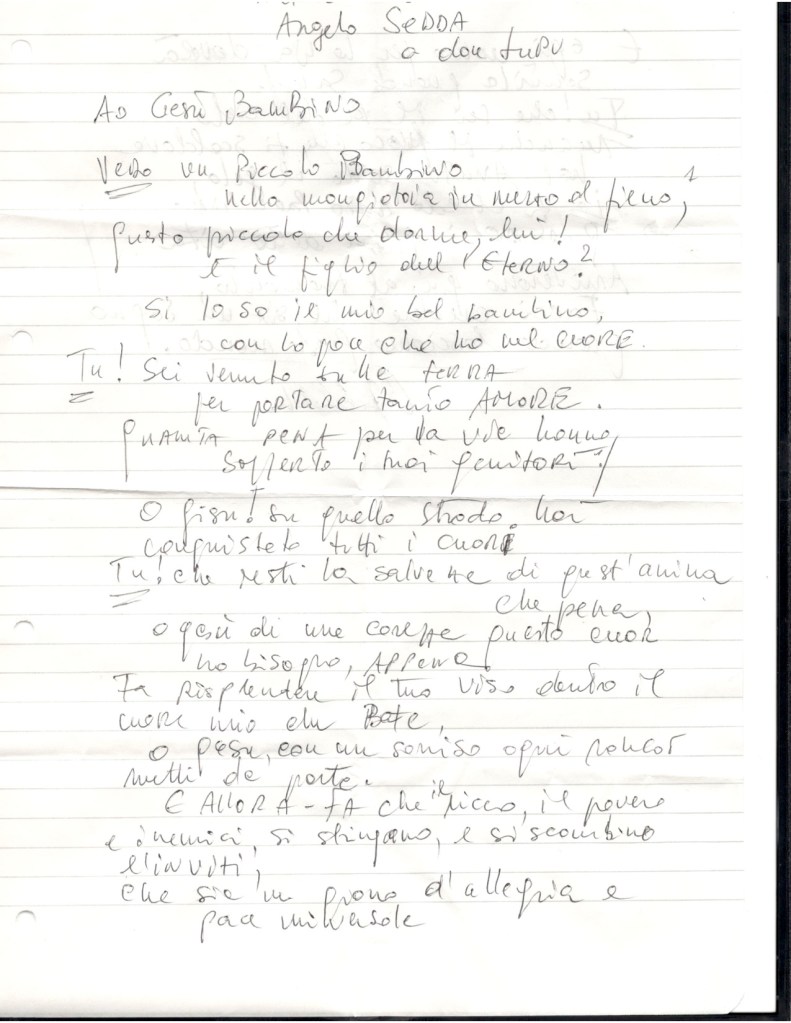 Angelo SEDDA
a don Lupu
Ao Gesù Bambino
Vedo un Piccolo Bambino
nella mongiotoia in mezzo al fieno,
questo piccolo che dorme, lui!
È il figlio dell'Eterno?
Si lo so il mio bel bambino,
con la pace che ho nel CUORE.
Tu! Sei venuto sulle TERRA
per portare tanto AMORE.
QUANTA PENA per la vie hanno
SOFFERTO i tuoi genitori!
O Gisu! su quella strada hai
conquistato tutti i CUORI
Tu! che resti la salvezze di quest'anima
che pena,
o gesù di une carezze questo cuor
ho bisogno, APPENA
Fa risplendere il Tuo viso dentro il
cuore mio che Bate,
o Gesu, con un sorriso ogni rancor
metti da parte.
E ALLORA - FA che il ricco, il povero
e inemici, si stringano, e si scambino
l'inviti,
che sia un giorno d'allegria e
pace universale